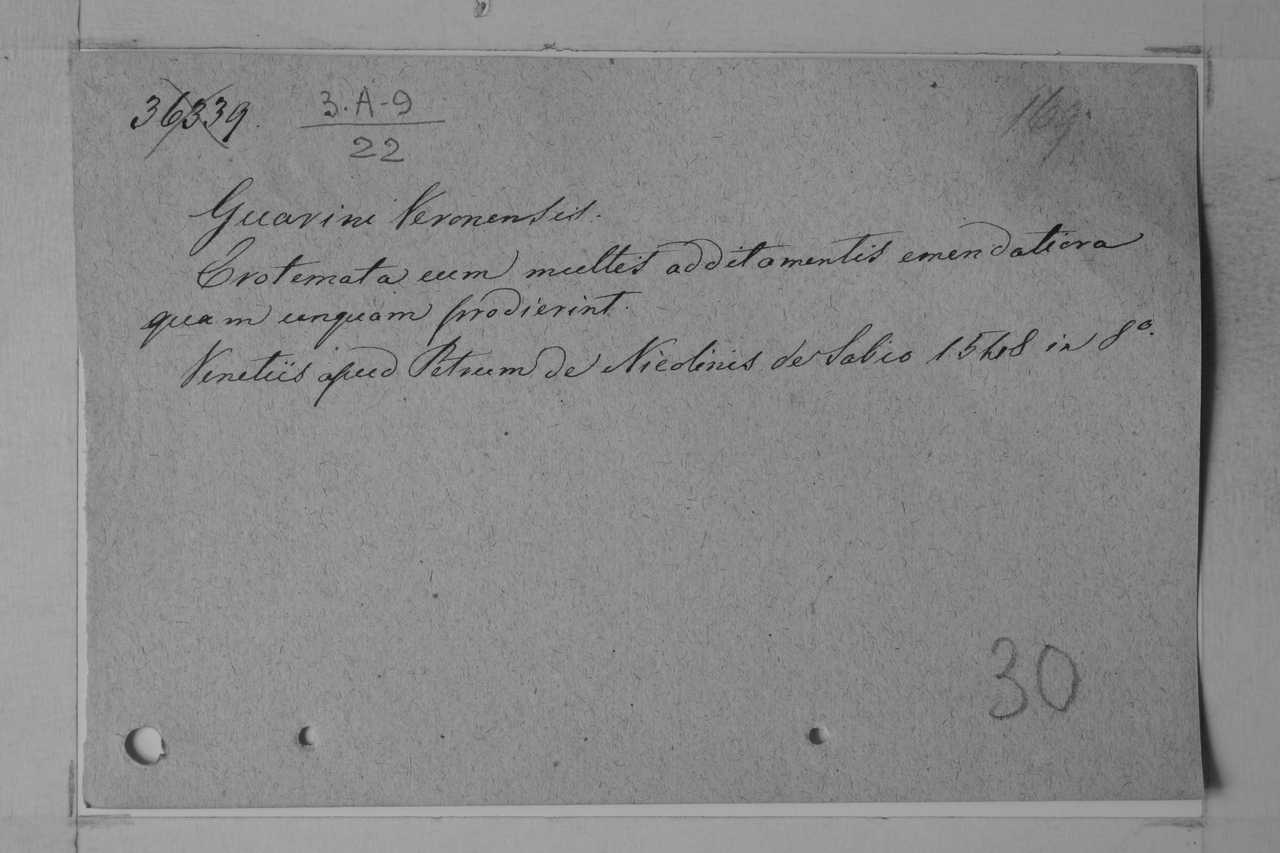 36339. 3.A-9
22
169.
Guarini Veronensis.
Erotemata cum multis additamentis emendatiora
quam unquam prodierint.
Venetiis apud Petrum de Nicolinis de Sabio 1548 in 8º.
30